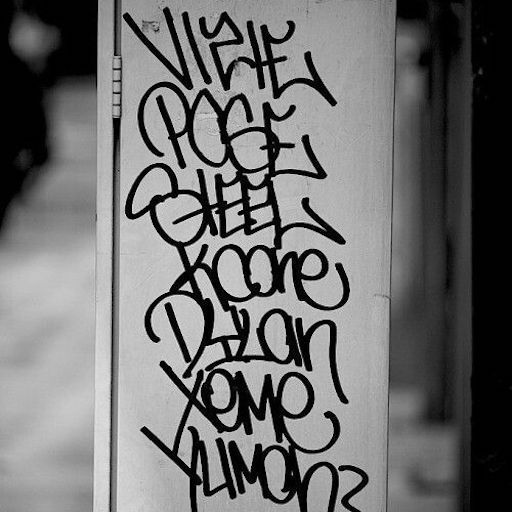 VIZIE
POSE
SHEEL
Koone
DYLan
XeMe
YUMan?